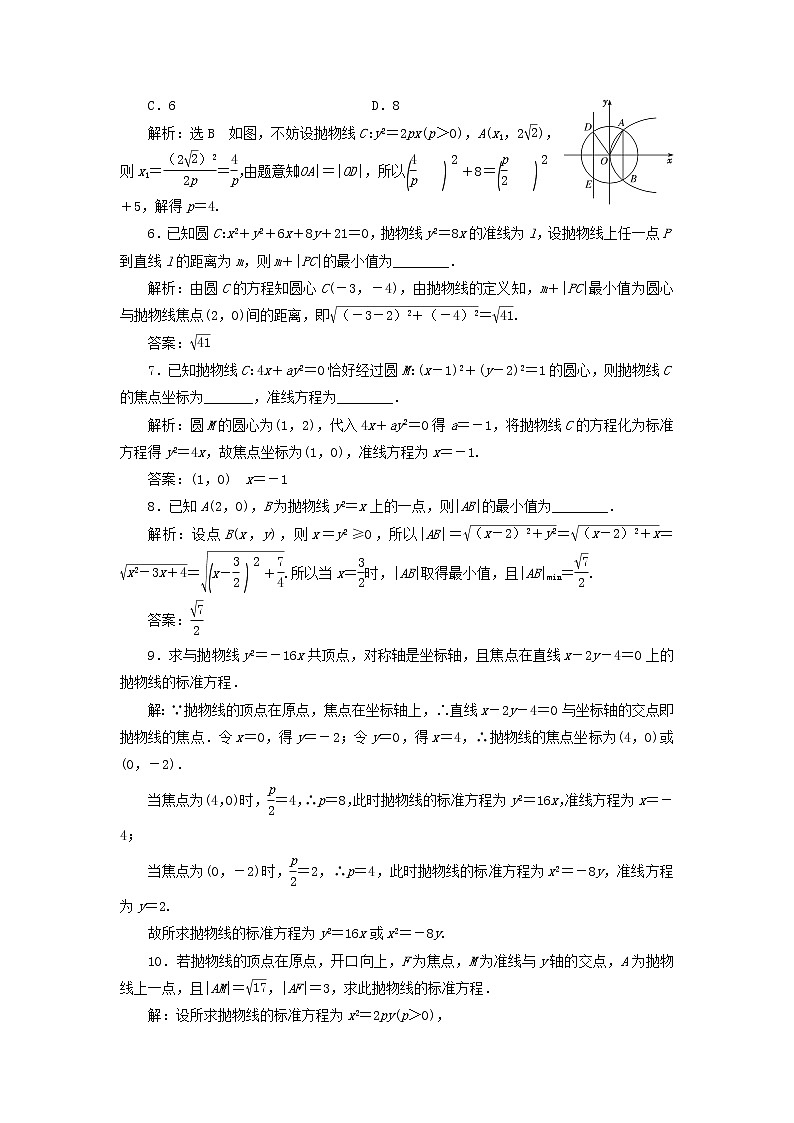 C．6 D．8
y
D A
O x
E B
解析：选 B 如图，不妨设抛物线 C：y²＝2px(p＞0)，A(x₁，2√2)，
则 x₁＝（2√2）²/2p＝4/p，由题意知|OA|＝|OD|，所以(4/p)²＋8＝(p/2)²
＋5，解得 p＝4.
6．已知圆 C：x²＋y²＋6x＋8y＋21＝0，抛物线 y²＝8x 的准线为 l，设抛物线上任一点 P
到直线 l 的距离为 m，则 m＋|PC|的最小值为________．
解析：由圆 C 的方程知圆心 C(－3，－4)，由抛物线的定义知，m＋|PC|最小值为圆心
与抛物线焦点(2，0)间的距离，即√（－3－2）²＋（－4）²＝√41.
答案：√41
7．已知抛物线 C：4x＋ay²＝0 恰好经过圆 M：(x－1)²＋(y－2)²＝1 的圆心，则抛物线 C
的焦点坐标为_______，准线方程为________．
解析：圆 M 的圆心为(1，2)，代入 4x＋ay²＝0 得 a＝－1，将抛物线 C 的方程化为标准
方程得 y²＝4x，故焦点坐标为(1，0)，准线方程为 x＝－1.
答案：(1，0) x＝－1
8．已知 A(2，0)，B 为抛物线 y²＝x 上的一点，则|AB|的最小值为________．
解析：设点 B(x，y)，则 x＝y²≥0，所以|AB|＝√（x－2）²＋y²＝√（x－2）²＋x＝
√x²－3x＋4＝√(x－3/2)²＋7/4.所以当 x＝3/2时，|AB|取得最小值，且|AB|min＝√7/2.
答案：√7/2
9．求与抛物线 y²＝－16x 共顶点，对称轴是坐标轴，且焦点在直线 x－2y－4＝0 上的
抛物线的标准方程．
解：∵抛物线的顶点在原点，焦点在坐标轴上，∴直线 x－2y－4＝0 与坐标轴的交点即
抛物线的焦点．令 x＝0，得 y＝－2；令 y＝0，得 x＝4，∴抛物线的焦点坐标为(4，0)或
(0，－2)．
当焦点为(4,0)时，p/2＝4，∴p＝8，此时抛物线的标准方程为 y²＝16x，准线方程为 x＝－
4；
当焦点为(0，－2)时，p/2＝2，∴p＝4，此时抛物线的标准方程为 x²＝－8y，准线方程
为 y＝2.
故所求抛物线的标准方程为 y²＝16x 或 x²＝－8y.
10．若抛物线的顶点在原点，开口向上，F 为焦点，M 为准线与 y 轴的交点，A 为抛物
线上一点，且|AM|＝√17，|AF|＝3，求此抛物线的标准方程．
解：设所求抛物线的标准方程为 x²＝2py(p＞0)，